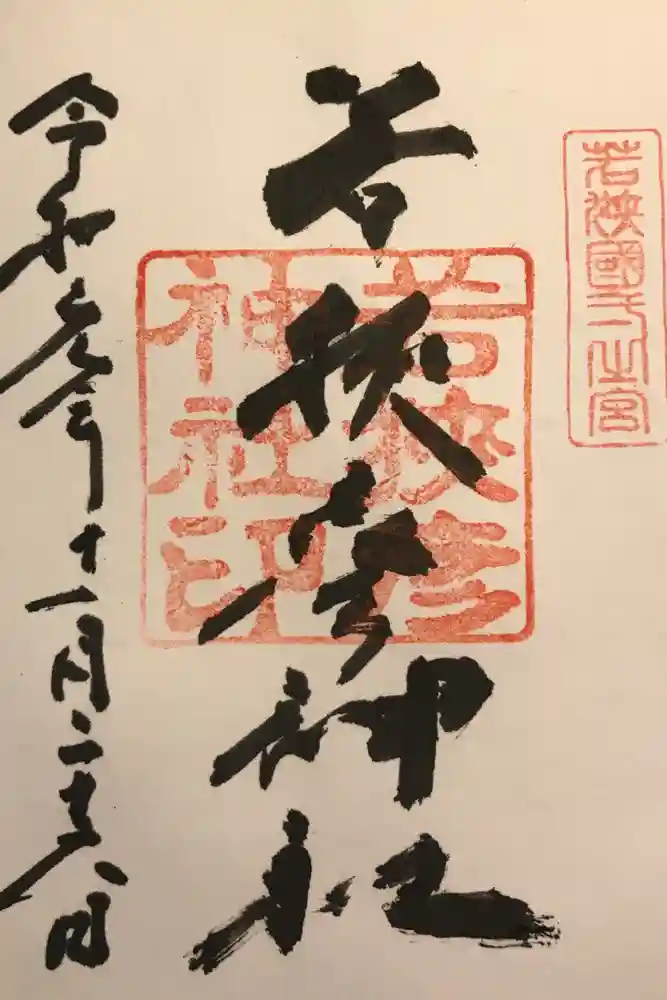 若狹國一之宮
若狭彦神社
若狭彦
神社印
令和元年十一月二十八日